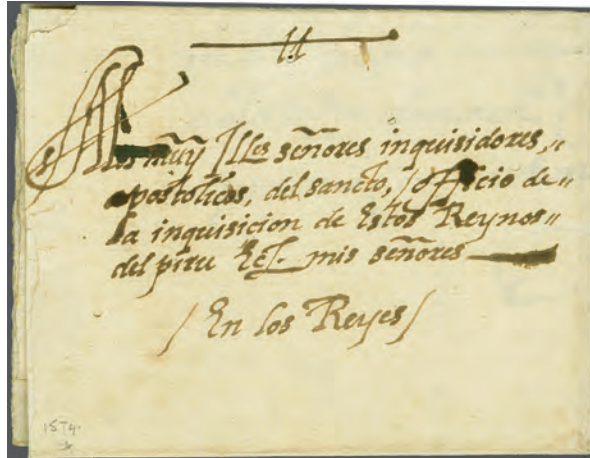 A los muy Illes señores inquisidores,,
apostolicos, del sancto, officio de,,
la inquisicion de Estos Reynos,,
del piru &c. mis señores
/ En los Reyes /
1574.